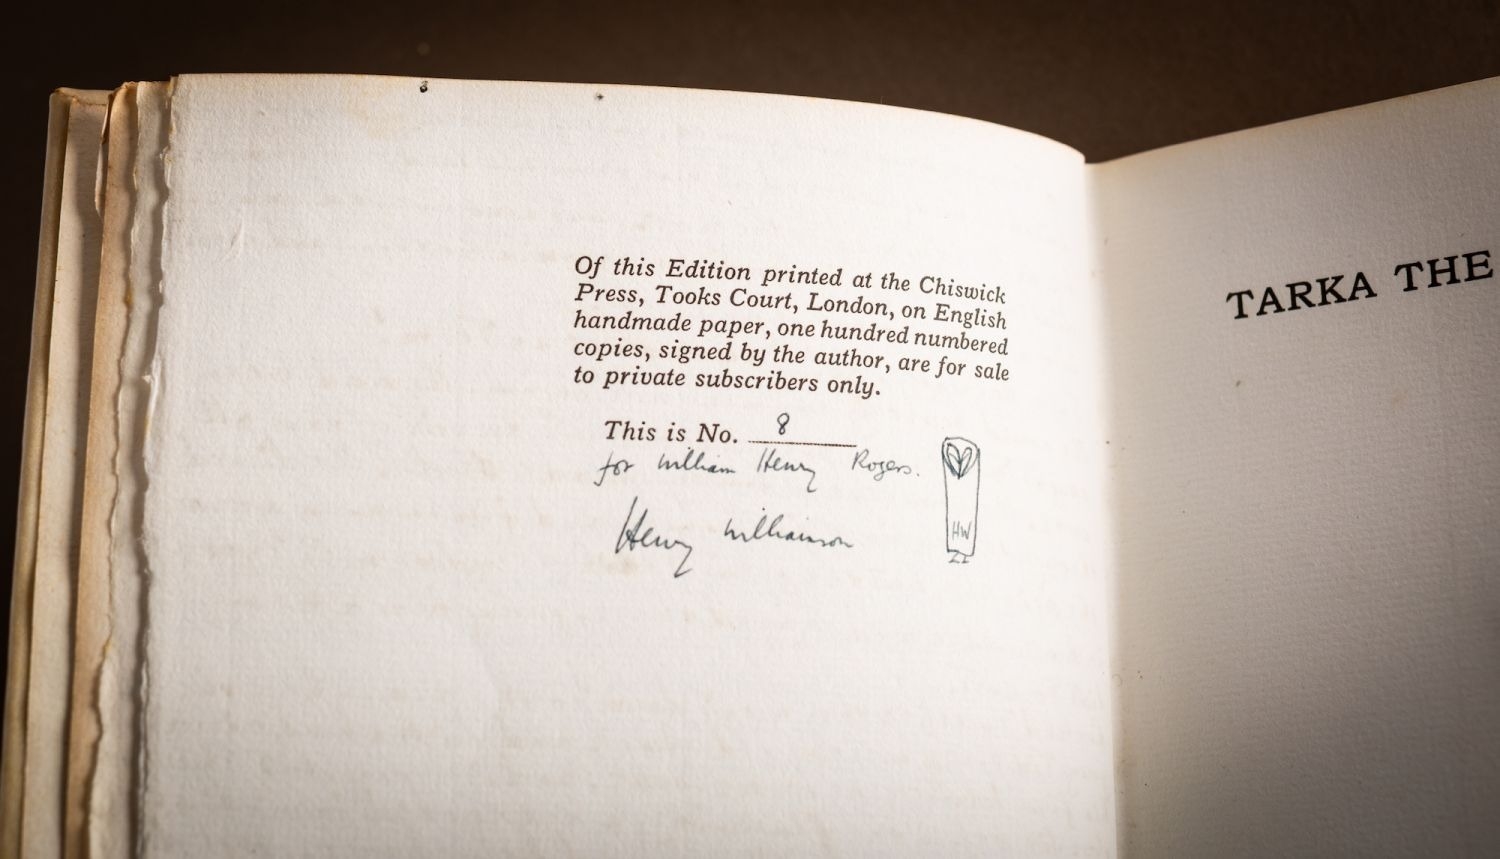 Of this Edition printed at the Chiswick
Press, Tooks Court, London, on English
handmade paper, one hundred numbered
copies, signed by the author, are for sale
to private subscribers only.
This is No. 8
for William Henry Rogers.
Henry Williamson
HW
TARKA THE